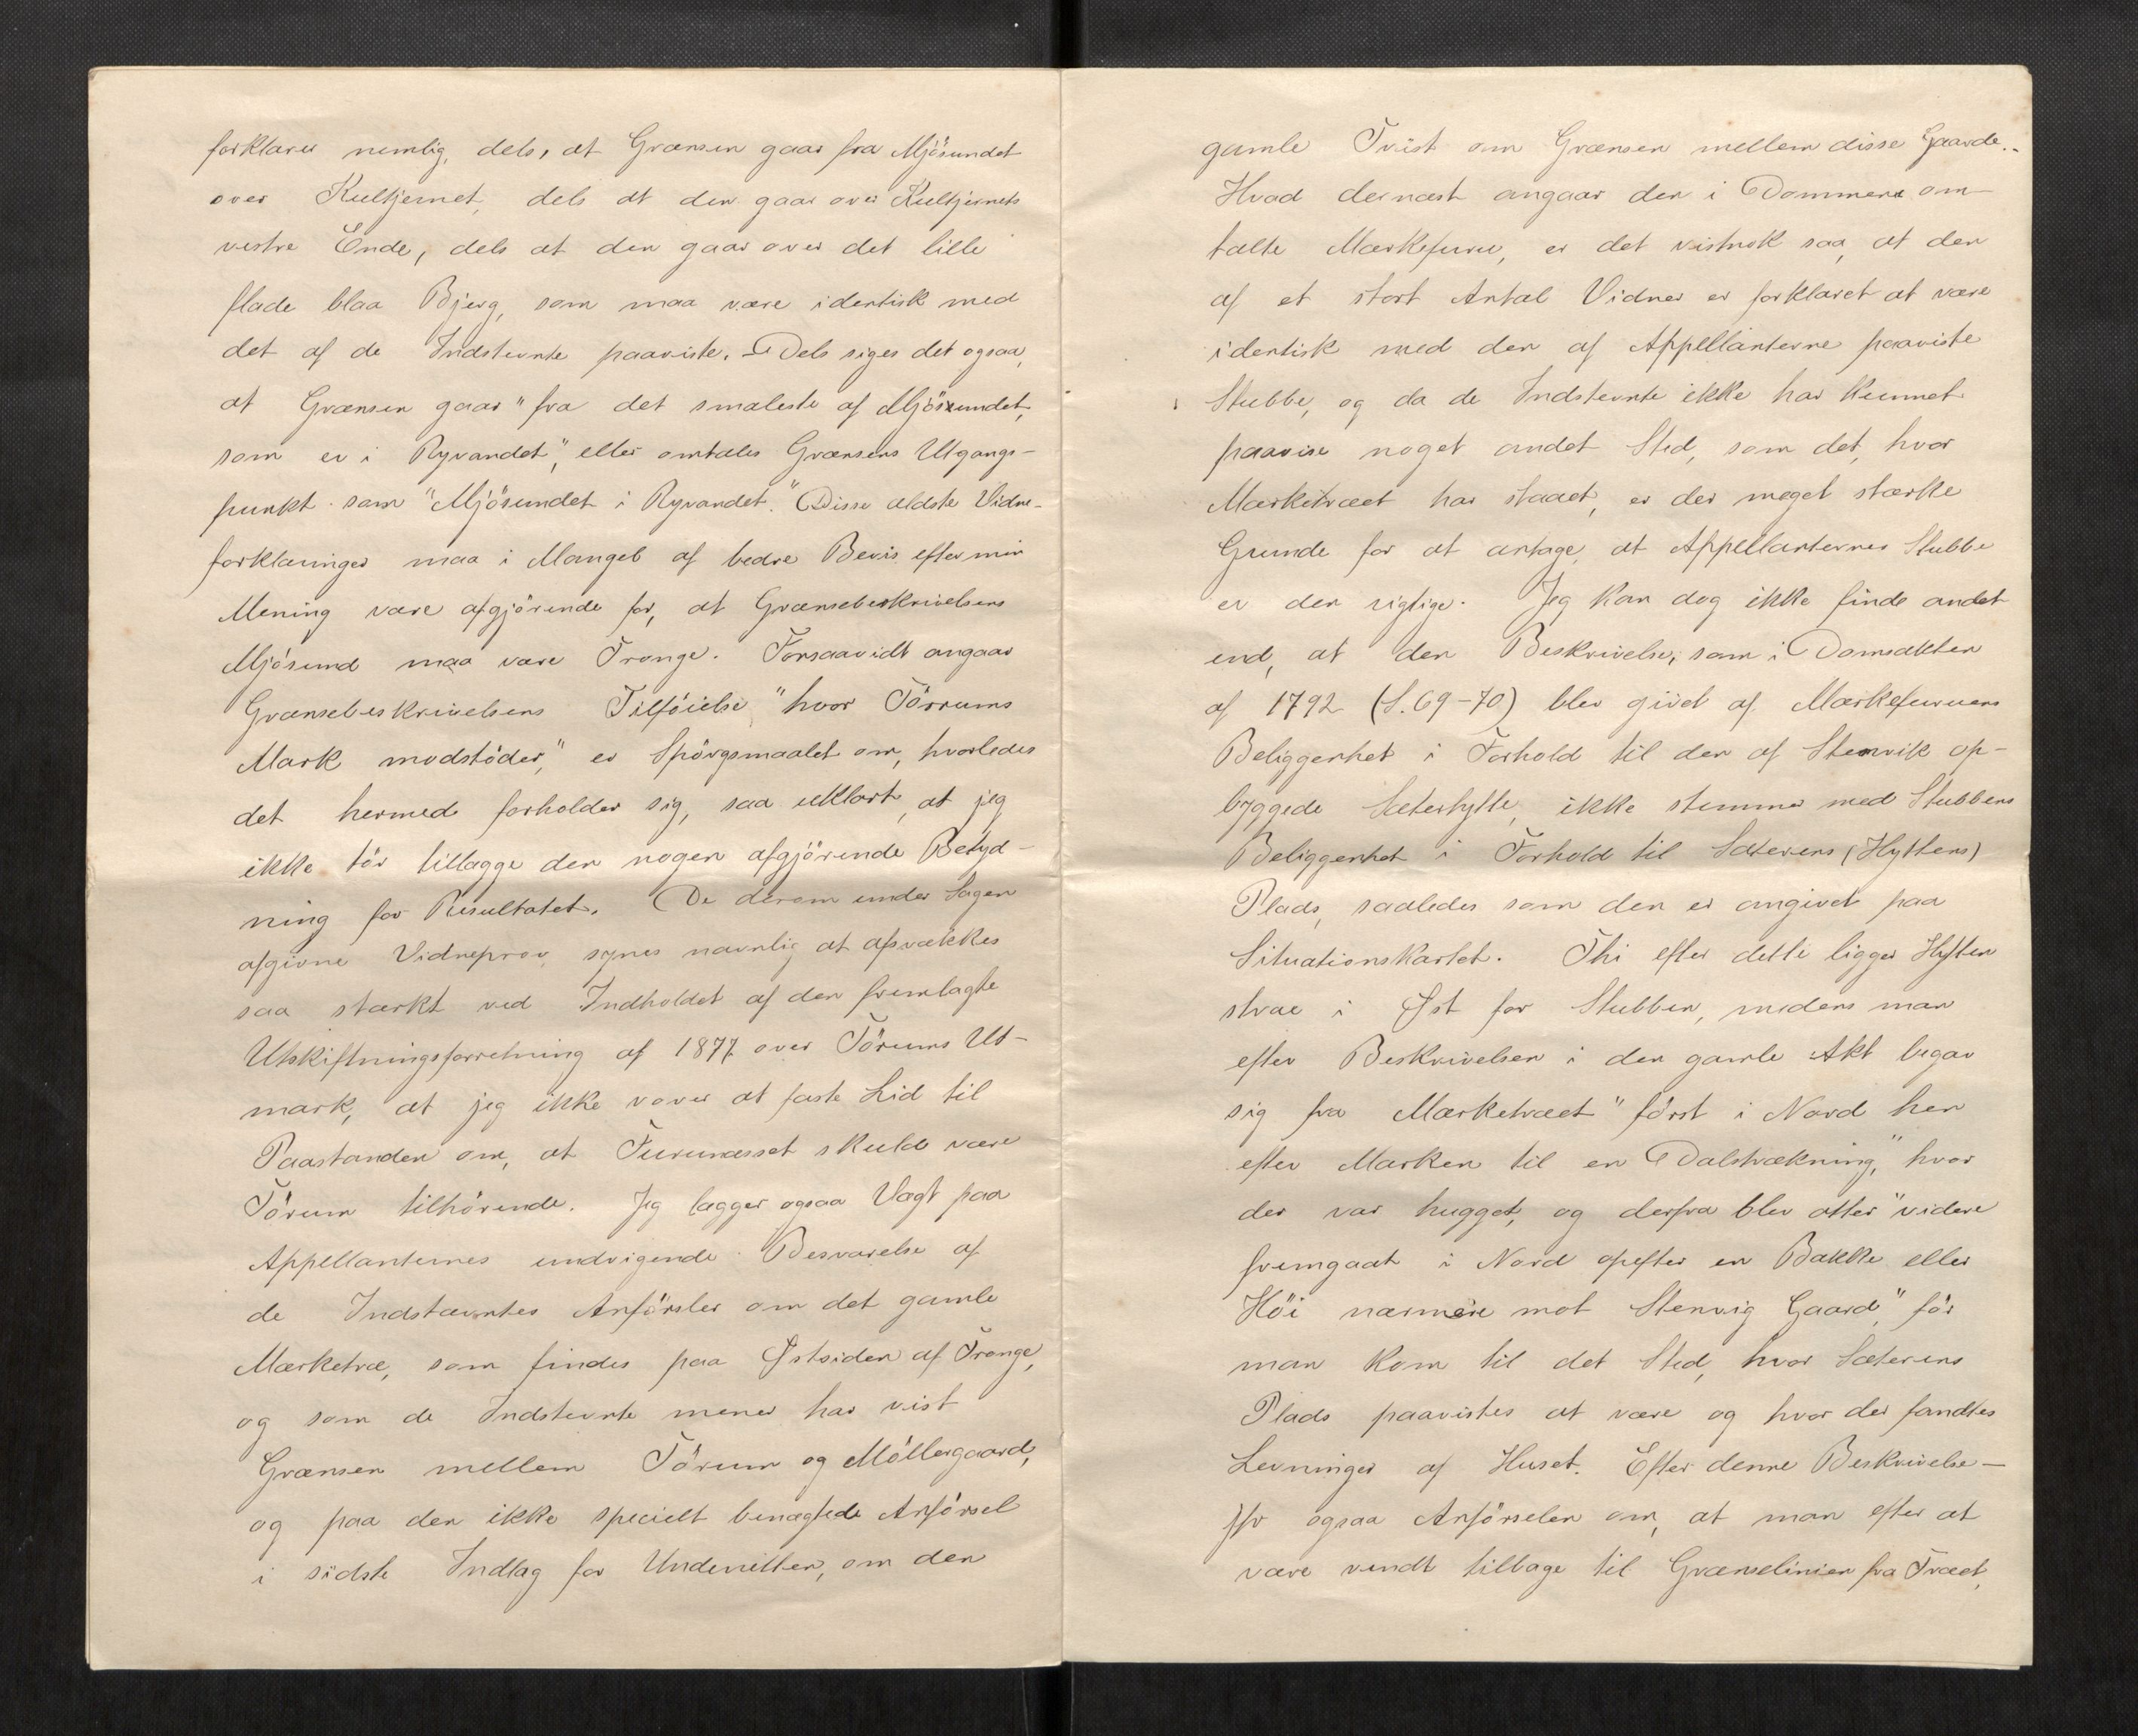 forklares nemlig, dels, at Grænsen gaar fra Mjösundet
over Kultjernet, dels at den gaar over Kultjernets
vestre Ende, dels at den gaar over det lille
flade blaa Bjerg, som maa være identisk med
det af de Indstevnte paaviste. Dels siges det ogsaa,
at Grænsen gaar "fra det smaleste af Mjösundet,
som er i Ryvandet", eller omtales Grænsens Utgangs-
punkt som "Mjösundet i Ryvandet." Disse ældste Vidne-
forklaringer maa i Mangel af bedre Bevis efter min
Mening være afgjörende for, at Grænsebeskrivelsens
Mjösund maa være Tronge. Forsaavidt angaar
Grænsebeskrivelsens Tilföielse "hvor Törrums
Mark modstöder," er Spörgsmaalet om, hvorledes
det hermed forholder sig, saa uklart, at jeg
ikke tör tillægge den nogen afgjörende Betyd-
ning for Resultatet. De derom under Sagen
afgivne Vidneprov synes navnlig at afsvækkes
saa stærkt ved Indholdet af den fremlagte
Utskiftningsforretning af 1877 over Törums Ut-
mark, at jeg ikke vover at fæste Lid til
Paastanden om, at Furunæsset skulde være
Törum tilhörende. Jeg lægger ogsaa Vægt paa
Appellanternes undvigende Besvarelse af
de Indstævntes Anförsler om det gamle
Mærketræ, som findes paa Østsiden af Tronge,
og som de Indstevnte mener har vist
Grænsen mellem Törum og Möllergaard,
og paa den ikke specielt benægtede Anförsel
i sidste Indlæg for Underretten, om den
gamle Tvist om Grænsen mellem disse Gaarde.
Hvad dernæst angaar den i Dommene om-
talte Mærkefuru, er det vistnok saa, at den
af et stort Antal Vidner er forklaret at være
identisk med den af Appellanterne paaviste
Stubbe, og da de Indstevnte ikke har kunnet
paavise noget andet Sted, som det, hvor
Mærketræet har staaet, er der meget stærke
Grunde for at antage, at Appellanternes Stubbe
er den rigtige. Jeg kan dog ikke finde andet
end, at den Beskrivelse, som i Domsakten
af 1792 (S. 69-70) blev givet af Mærkefuruens
Beliggenhet i Forhold til den af Stenvik op-
byggede Sæterhytte, ikke stemmer med Stubbens
Beliggenhet i Forhold til Sæterens (Hyttens)
Plads, saaledes som den er angivet paa
Situationskartet. Thi efter dette ligger Hytten
strax i Øst for Stubben, medens man
efter Beskrivelsen i den gamle Akt begav
sig fra Mærketræet "först i Nord hen
efter Marken til en Dalstrækning," hvor
der var hugget, og derfra blev atter "videre
fremgaat i Nord opefter en Bakke eller
Höi nærmere mot Stenvig Gaard," för
man kom til det Sted, hvor Sæterens
Plads paavistes at være og hvor der fandtes
Levninger af Huset. Efter denne Beskrivelse -
jfr ogsaa Anförselen om, at man efter at
være vendt tilbage til Grænselinien fra Træet,